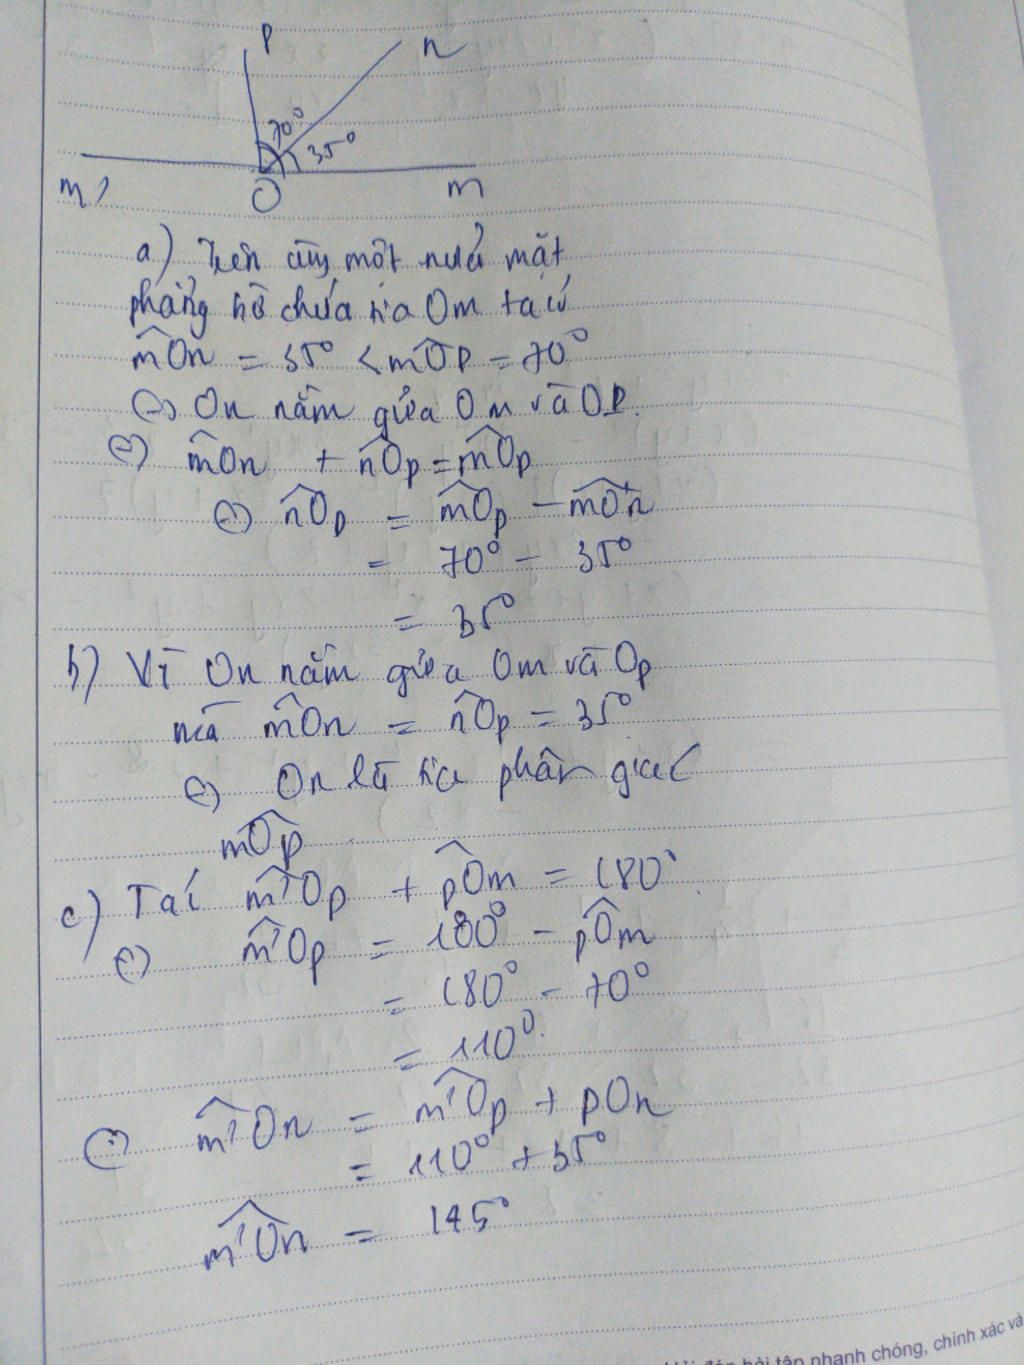 p
n
70°
35°
m'
O
m
a) Trên cùng một nửa mặt
phẳng bờ chứa tia Om ta có
m̂On = 35° < mÔp = 70°
⇒ On nằm giữa Om và Op.
⇒ m̂On + n̂Op = m̂Op
⇒ n̂Op = m̂Op - m̂On
= 70° - 35°
= 35°
b) Vì On nằm giữa Om và Op
mà m̂On = n̂Op = 35°
⇒ On là tia phân giác
mÔp
c) Ta có m'Ôp + pÔm = 180°
⇒ m'Ôp = 180° - pÔm
= 180° - 70°
= 110°.
⇒ m'Ôn = m'Ôp + pOn
= 110° + 35°
m'Ôn = 145°
bài tập nhanh chóng, chính xác và